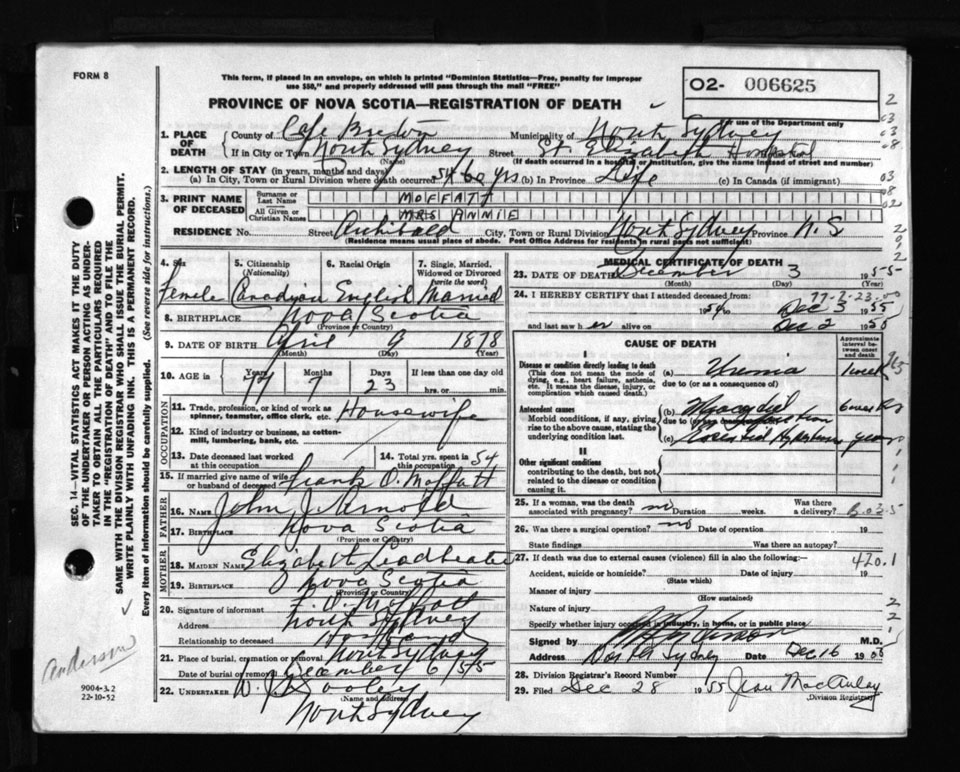 FORM 8
This form, if placed in an envelope, on which is printed "Dominion Statistics—Free, penalty for improper
use $50," and properly addressed will pass through the mail "FREE"
O2- 006625
For use of the Department only
PROVINCE OF NOVA SCOTIA—REGISTRATION OF DEATH
1. PLACE OF DEATH County of Cape Breton Municipality of North Sydney
If in City or Town North Sydney Street St. Elizabeth Hospital
(Name) (If death occurred in a hospital or institution, give the name instead of street and number)
2. LENGTH OF STAY (in years, months and days)
(a) In City, Town or Rural Division where death occurred 60 yrs (b) In Province Life (c) In Canada (if immigrant)
3. PRINT NAME OF DECEASED
Surname or Last Name MOFFATT
All Given or Christian Names MRS ANNIE
RESIDENCE No. Street Archibald City, Town or Rural Division North Sydney Province N.S
(Residence means usual place of abode. Post Office Address for residents in rural parts not sufficient)
4. Sex Female
5. Citizenship (Nationality) Canadian
6. Racial Origin English
7. Single, Married, Widowed or Divorced (write the word) Married
8. BIRTHPLACE Nova Scotia
(Province or Country)
9. DATE OF BIRTH April 9 1878
(Month) (Day) (Year)
10. AGE in Years Months Days If less than one day old
77 7 23 hrs. or min.
OCCUPATION
11. Trade, profession, or kind of work as spinner, teamster, office clerk, etc. Housewife
12. Kind of industry or business, as cotton-mill, lumbering, bank, etc.
13. Date deceased last worked at this occupation
14. Total yrs. spent in this occupation 54
15. If married give name of wife or husband of deceased Frank O. Moffatt
FATHER
16. NAME John J. Arnold
17. BIRTHPLACE Nova Scotia
(Province or Country)
MOTHER
18. MAIDEN NAME Elizabeth Leadbeater
19. BIRTHPLACE Nova Scotia
(Province or Country)
20. Signature of informant F. O. Moffatt
Address North Sydney
Relationship to deceased Husband
21. Place of burial, cremation or removal North Sydney
Date of burial or removal December 6/55
22. UNDERTAKER W. J. Dooley
(Name and Address)
North Sydney
MEDICAL CERTIFICATE OF DEATH
23. DATE OF DEATH December 3 1955
(Month) (Day) (Year)
24. I HEREBY CERTIFY that I attended deceased from:
Dec 3 1955
and last saw her alive on Dec 2 1955
CAUSE OF DEATH
Approximate interval between onset and death
I
Disease or condition directly leading to death
(This does not mean the mode of dying, e.g., heart failure, asthenia, etc. It means the disease, injury, or complication which caused death.)
(a) Uremia 1 week
due to (or as a consequence of)
Antecedent causes
Morbid conditions, if any, giving rise to the above cause, stating the underlying condition last.
(b)
due to (or as a consequence of)
(c) years
II
Other significant conditions
contributing to the death, but not related to the disease or condition causing it.
25. If a woman, was the death associated with pregnancy? no Duration weeks. Was there a delivery?
26. Was there a surgical operation? no Date of operation 19
State findings Was there an autopsy?
27. If death was due to external causes (violence) fill in also the following:—
420.1
Accident, suicide or homicide? Date of injury 19
(State which)
Manner of injury
(How sustained)
Nature of injury
Specify whether injury occurred in industry, in home, or in public place
Signed by M.D.
Address North Sydney Date Dec 16 1955
28. Division Registrar's Record Number
29. Filed Dec 28 1955 Jean MacAuley
(Division Registrar)
SEC. 14—VITAL STATISTICS ACT MAKES IT THE DUTY
OF THE UNDERTAKER OR PERSON ACTING AS UNDERTAKER TO OBTAIN ALL THE PARTICULARS REQUIRED
IN THE "REGISTRATION OF DEATH" AND TO FILE THE
SAME WITH THE DIVISION REGISTRAR WHO SHALL ISSUE THE BURIAL PERMIT.
WRITE PLAINLY WITH UNFADING INK. THIS IS A PERMANENT RECORD.
Every item of information should be carefully supplied. (See reverse side for instructions.)
Anderson
9004-3.2
22-10-52